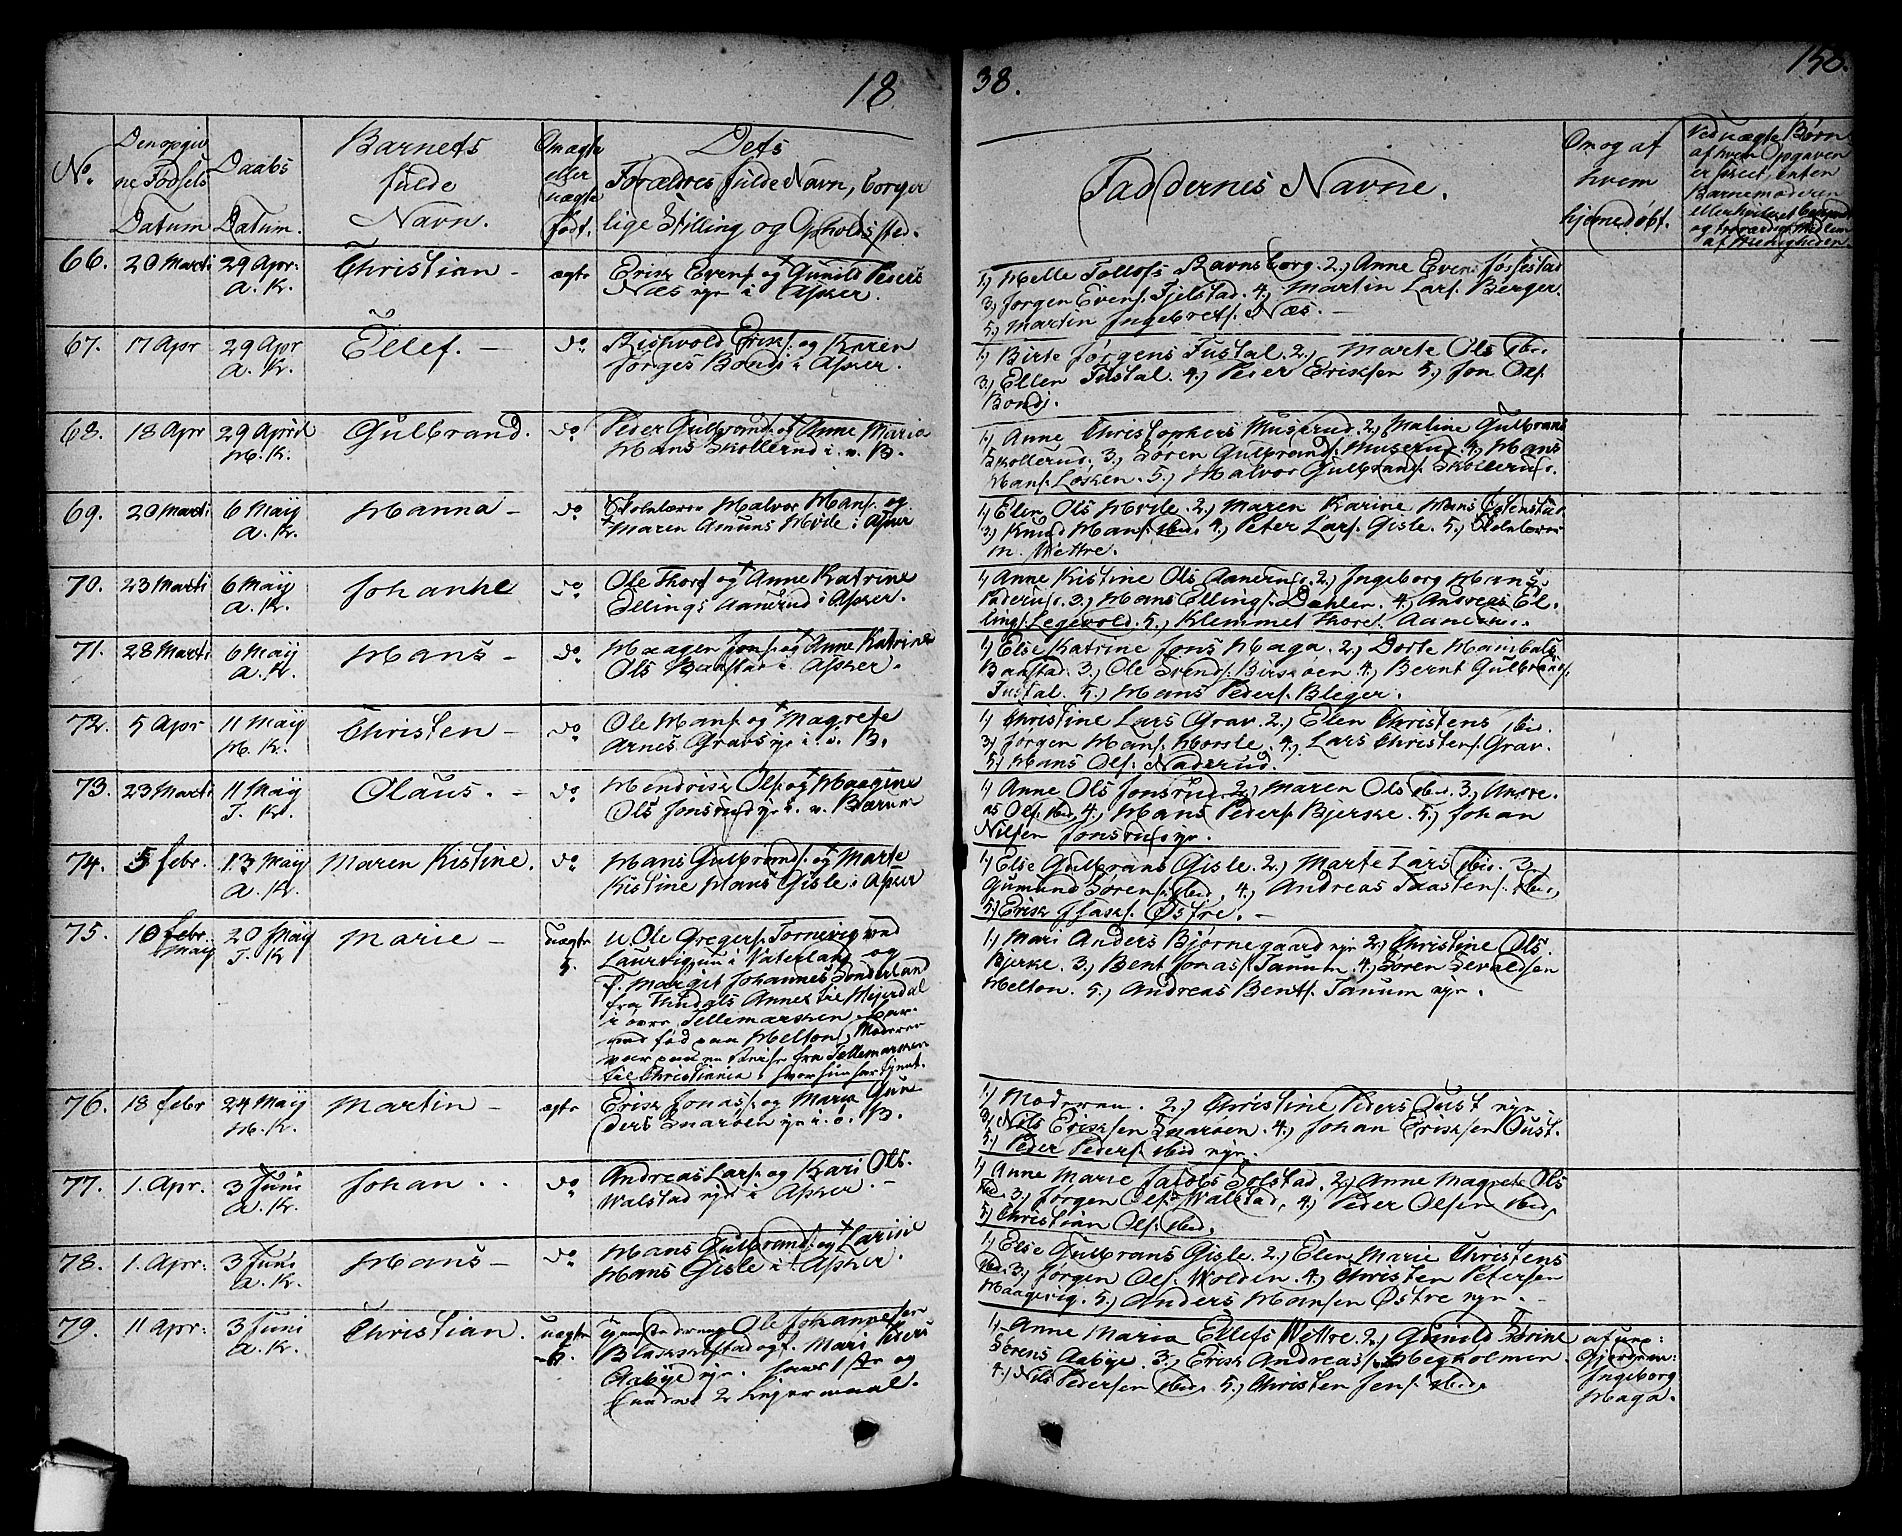 18
38.
150.
No.
Den opgiv
ne Fødsels
Datum
Daabs
Datum.
Barnets
fulde
Navn.
Om ægte
eller
uægte
født.
Dets
Forældres fulde Navn, borger
lige Stilling og Opholdsted.
Faddernes Navne.
Om og af
hvem
hjemedøbt.
Ved uægte Børn
af hvem Opgaven
er skeet, enten
Barnemoderen
eller hvilket
og troværdigt Medlem
af Menigheden.
66. 20 Marti 29 Apr: Christian - ægte Erik Evens. og Gunild Peders
A. K. Næs nyr i Asker.
1, Helle Tollefs Ravnsborg. 2, Anne Evens
3, Jørgen Evens. Fjelstad. 4, Martin Lars. Berger.
5, Martin Ingebrets. Næs. -
67. 17 Apr 29 Apr Ellef. - do Erik. og Karen
A. K. Jørges Bondi i Asker.
1, Birte Jørgens Tustal. 2, Marte Ols ibid.
3, Ellen Tustal. 4, Peder Eriksen 5, Jon Ols.
Bondi.
68. 18 Apr 29 April Gulbrand. do Peder Gulbrands. og Anne Maria
H. K. Hans Skollerud i v. B.
1, Anne Christophers Muserud. 2, Maline Gulbrans
Skollerud. 3, Søren Gulbrands. Muserud. 4, Hans
Hans. Løsken. 5, Halvor Gulbrands. Skollerud.
69. 20 Marti 6 Maij Hanna - do Skolelærer Halvor Hans. og
A. K. Maren Amuns Hvile i Asker
1, Elen Ols Hvile. 2, Maren Karine Hans
3, Knud Hans. ibid. 4, Peter Lars. Gisle. 5, Skolelærer
Wettre.
70. 23 Marti 6 Maij Johanne do Ole Thors. og Anne Katrine
A. K. Ellings Aanerud i Asker.
1, Anne Kistine Ols Aanerud. 2, Ingeborg Hans
3, Hans Ellings. Dahlen. 4, Andreas El-
lings. Legevold. 5, Klemmet Thors. Aanerud.
71. 28 Marti 6 Maij Hans - do Haagen Jons. og Anne Katrine
A. K. Ols Baastad i Asker.
1, Else Katrine Jons Haga. 2, Dorte
Baastad. 3, Ole Svends. 4, Bernt Gulbrans.
Tustal. 5, Hans Peders. Bleger.
72. 5 Apr 11 Maij Christen - do Ole Hans. og Magrete
H. K. Arnes Grav nyr i ø. B.
1, Christine Lars Grav. 2, Elen Christens ibid.
3, Jørgen Hans. Horsle. 4, Lars Christens. Grav.
5, Hans Ols. Naderud.
73. 23 Marti 11 Maij Olaus. - do Hendrik Ols. og Haagine
T. K. Ols Jonsrud nyr i v. Bærum
1, Anne Ols Jonsrud. 2, Maren Ols ibid. 3, Andre-
as Ols. ibid. 4, Hans Peders. Bjerke. 5, Johan
Nilsen Jonsrud nyr.
74. 5 febr. 13 Maij Maren Kistine. do Hans Gulbrands. og Marte
A. K. Kistine Hans Gisle i Asker
1, Else Gulbrans Gisle. 2, Marte Lars ibid. 3,
Gumund Sørens. ibid, 4, Andreas Taastens. ibid,
5, Erik Isaks. Østre. -
75. 10 febr. 20 Maij Marie - uægte U. Ole Gregers. Tornevig ved
Maij T. K. 5. Laurvigen i Vaterland og
f. Margit Johannes Sønderland
fra Annex til Hjerdal
i øvre Tellemarken. Bar-
net fød paa Helton, Moderen
var paa en Reise fra Tellemarken
til Christiania, hvor hun har tjent.
1, Mari Anders Bjørnegaard nyr 2, Christine Ols.
Bjerke. 3, Bent Jonas. Tanum. 4, Søren Sevaldsen
Helton. 5, Andreas Bents. Tanum nyr.
76. 18 febr 24 Maij Martin - ægte Erik Jonas. og Maria Gun-
H. K. ders Snarøen nyr i ø. B.
1, Moderen. 2, Christine Peders Oust nyr
3, Nils Eriksen Snarøen. 4, Johan Eriksen Oust.
5, Peder Peders. ibid nyr.
77. 1. Apr: 3 Juni Johan . . do Andreas Lars. og Kari Ols.
A. K. Walstad nyr i Asker. -
1, Anne Marie Solstad. 2, Anne Magrete Ols
ibid. 3, Jørgen Ols. Walstad, 4, Peder Olsen ibid.
5, Christian Ols. ibid.
78. 1. Apr: 3 Juni Hans - do Hans Gulbrands. og Larine
A. K. Hans Gisle i Asker.
1, Else Gulbrans Gisle. 2, Elen Marie Christens
ibid. 3, Jørgen Ols. Wolden. 4, Christen Petersen
Haagevig. 5, Anders Hansen Østre nyr. -
79. 11 Apr: 3 Juni Christian. uægte Ole Johannesen
A. K. 6. Blakkestad og f. Mari Peders
Aabye nyr. hans 1ste og
hendes 2 Leiermaal.
1, Anne Maria Ellefs Wettre. 2, Gunild Sørine
Sørens Aabye. 3, Erik Andreas. Hegholmen.
4, Nils Pedersen ibid. 5, Christen Jens. ibid.
af
Ingeborg
Haga.